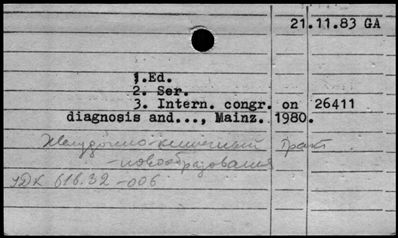 21.11.83 GA
1.Ed.
2. Ser.
3. Intern. congr. on 26411
diagnosis and..., Mainz. 1980.
Желудочно-кишечный тракт
-новообразования
УДК 616.32-006